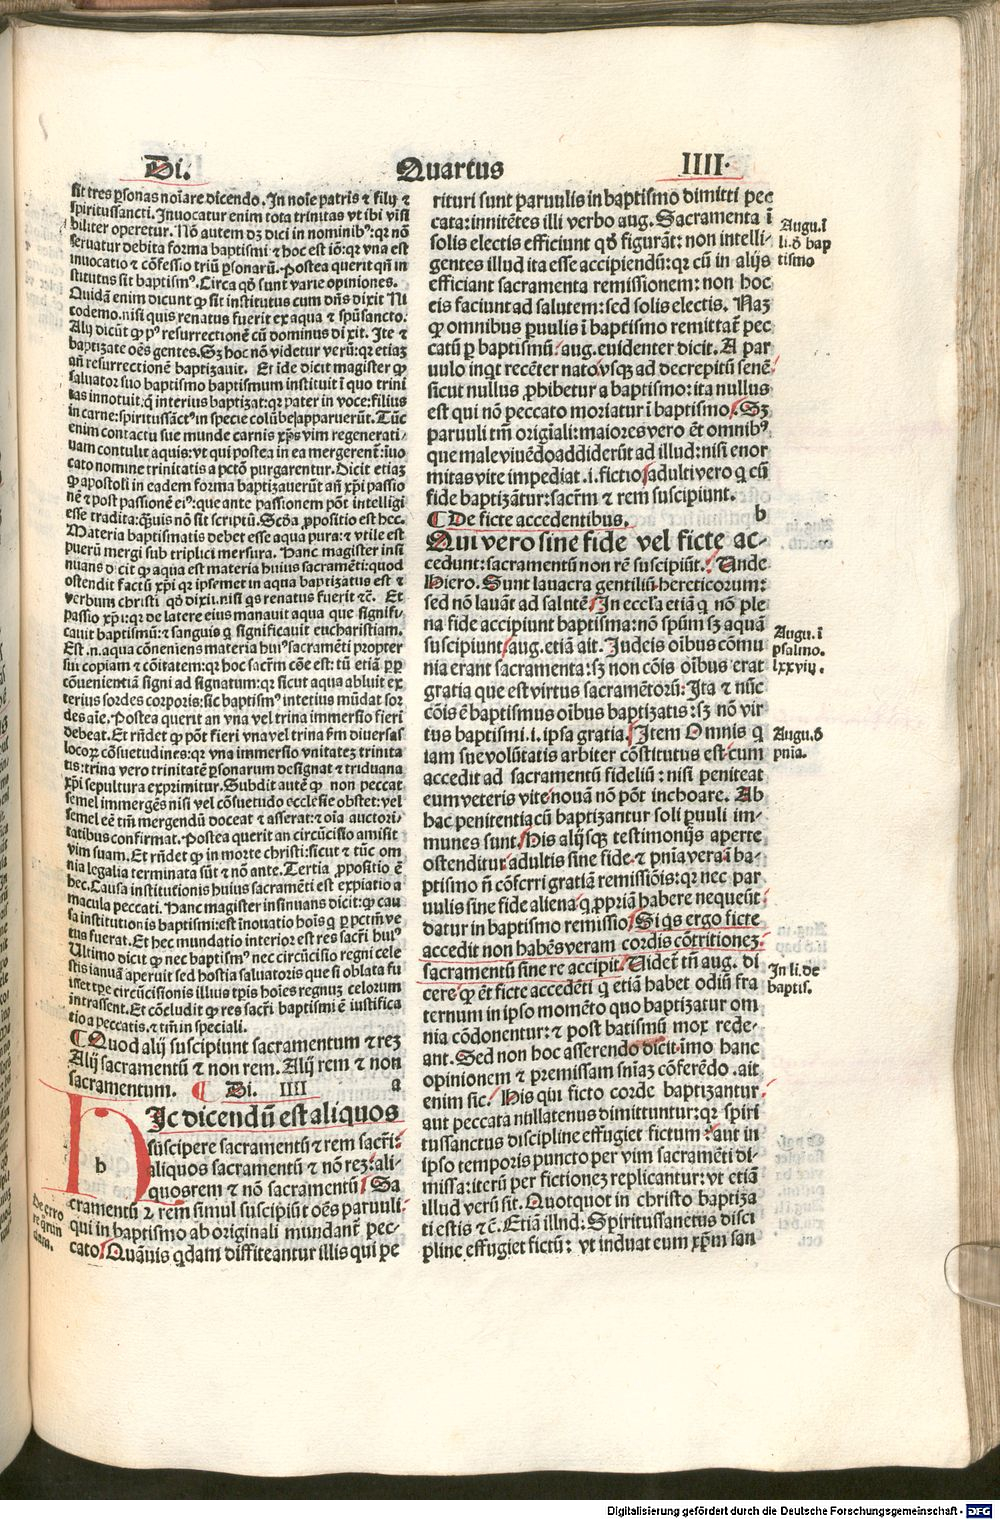 Di. Quartus IIII.
sit tres ꝑsonas noĩare dicendo. In noĩe patris ⁊ filij ⁊
spiritussancti. Inuocatur enim tota trinitas vt ibi visi
biliter operetur. Nõ autem dꝫ dici in nominibꝰ: qꝛ nõ
seruatur debita forma baptismi ⁊ hoc est iõ: qꝛ vna est
inuocatio ⁊ cõfessio triũ ꝑsonarũ. Postea querit qñ in
stitutus sit baptismꝰ. Circa qḋ sunt varie opiniones.
Quidã enim dicunt ꝙ sit institutus cum dñs dixit Ni
codemo. nisi quis renatus fuerit ex aqua ⁊ spũsancto.
Alij dicũt ꝙ pꝰ resurrectionẽ cũ dominus dixit. Ite ⁊
baptizate oẽs gentes. Sꝫ hoc nõ videtur verũ: qꝛ etiaꝫ
añ resurrectionẽ baptizauit. Et ide dicit magister ꝙ
saluator suo baptismo baptismum instituit ĩ quo trini
tas innotuit, q̃ interius baptizat: qꝛ pater in voce: filius
in carne: spiritussãctꝰ in specie colũbe apparuerũt. Tũc
enim contactu sue munde carnis xp̃s vim regenerati/
uam contulit aquis: vt qui postea in ea mergerent̃: ĩuo
cato nomine trinitatis a pctõ purgarentur. Dicit etiaꝫ
ꝙ apostoli in eadem forma baptizauerũt añ xp̃i passio
nẽ ⁊ post passionẽ eiꝰ: que ante passionem põt intelligi
esse tradita: q̃uis nõ sit scriptũ. Scḋa ꝓpositio est hec.
Materia baptismatis debet esse aqua pura: ⁊ vtile est
puerũ mergi sub triplici mersura. Hanc magister insi
nuans dicit ꝙ aqua est materia huius sacramẽti: quod
ostendit factũ xp̃i qꝛ ipsemet in aqua baptizatus est ⁊
verbum christi qḋ dixit. nisi qs renatus fuerit ⁊c̃. Et
passio xp̃i: qꝛ de latere eius manauit aqua que signifi-
cauit baptismũ: ⁊ sanguis q̃ significauit eucharistiam.
Est .n. aqua cõneniens materia huiꝰ sacramẽti propter
sui copiam ⁊ cõitatem: qꝛ hoc sacr̃m cõe est: tũ etiã ꝓpꝛ
cõuenientiã signi ad signatum: qꝛ sicut aqua abluit ex
terius sordes corporis: sic baptismꝰ interius mũdat sor
des aĩe. Postea querit an vna vel trina immersio fieri
debeat. Et rñdet ꝙ põt fieri vna vel trina ẜm diuersas
locoꝝ cõsuetudines: qꝛ vna immersio vnitateꝫ trinita
tis: trina vero trinitatẽ ꝑsonarum designat ⁊ triduana
xp̃i sepultura exprimitur. Subdit autẽ ꝙ non peccat
semel immergẽs nisi vel cõsuetudo ecclesie obstet: vel
semel eẽ tm̃ mergendũ doceat ⁊ asserat: ⁊ oĩa auctori/
tatibus confirmat. Postea querit an circũcisio amisit
vim suam. Et rñdet ꝙ in morte christi: sicut ⁊ tũc om
nia legalia terminata sũt ⁊ nõ ante. Tertia ꝓpositio ẽ
hec. Causa institutionis huius sacramẽti est expiatio a
macula peccati. Hanc magister insinuans dicit: ꝙ cau
sa institutionis baptismi: est ĩnouatio hoĩs q̃ ꝑ pctm̃ ve
tus fuerat. Et hec mundatio interior est res sacr̃i huiꝰ
Ultimo dicit ꝙ nec baptismꝰ nec circũcisio regni cele
stis ianuã aperuit sed hostia saluatoris que si oblata fu
isset tꝑe circũcisionis illius tꝑis hoĩes regnuꝫ celorum
intrassent. Et cõcludit ꝙ res sacr̃i baptismi ẽ iustifica
tio a peccatis. ⁊ tm̃ in speciali.
¶ Quod alij suscipiunt sacramentum ⁊ reꝫ
Alij sacramentũ ⁊ non rem. Alij rem ⁊ non
sacramentum. ¶ Di. IIII a
HIc dicendũ est aliquos
suscipere sacramentũ ⁊ rem sacr̃i:
b aliquos sacramentũ ⁊ nõ reꝫ: ali-
quos rem ⁊ nõ sacramentũ. Sa
cramentũ ⁊ rem simul suscipiũt oẽs paruuli
qui in baptismo ab originali mundant̃ pec-
cato. Quãuis qdam diffiteantur illis qui pe
rituri sunt paruulis in baptismo dimitti pec
cata: innitẽtes illi verbo aug. Sacramenta ĩ
solis electis efficiunt qḋ figurãt: non intelli-
gentes illud ita esse accipiendũ: qꝛ cũ in alijs
efficiant sacramenta remissionem: non hoc
eis faciunt ad salutem: sed solis electis. Naꝫ
ꝙ omnibus ꝑuulis ĩ baptismo remittat̃ pec
catũ ꝑ baptismũ: aug. euidenter dicit. A par
uulo inqt recẽter nato vsqꝫ ad decrepitũ senẽ
sicut nullus ꝓhibetur a baptismo: ita nullus
est qui nõ peccato moriatur ĩ baptismo. Sꝫ
paruuli tm̃ origĩali: maiores vero ẽt omnibꝰ
que male viuẽdo addiderũt ad illud: nisi enor
mitas vite impediat .i. fictio, adulti vero q̃ cũ
fide baptizãtur: sacr̃m ⁊ rem suscipiunt.
¶ De ficte accedentibus. b
Qui vero sine fide vel ficte ac-
cedunt: sacramentũ non rẽ suscipiũt. Unde
Hiero. Sunt lauacra gentiliũ hereticorum:
sed nõ lauãt ad salutẽ. In eccl̃a etiã q̃ nõ ple
na fide accipiunt baptisma: nõ spũm sꝫ aquã
suscipiunt, aug. etiã ait. Judeis oĩbus cõmu
nia erant sacramenta: sꝫ non cõis oĩbus erat
gratia que est virtus sacramẽtorũ: Ita ⁊ nũc
cõis ẽ baptismus oĩbus baptizatis: sꝫ nõ vir
tus baptismi. i. ipsa gratia. Item Omnis q̃
iam sue volũtatis arbiter cõstitutus est cum
accedit ad sacramentũ fideliũ: nisi peniteat
eum veteris vite nouã nõ põt inchoare. Ab
hac penitentia cũ baptizantur soli ꝑuuli im-
munes sunt. His alijsqꝫ testimonijs aperte
ostenditur adultis sine fide ⁊ pnĩa vera ĩ ba-
ptismo ñ cõferri gratiã remissiõis: qꝛ nec par
uulis sine fide aliena q̃ ꝓpriã habere nequeũt
datur in baptismo remissio. Si qs ergo ficte
accedit non habẽs veram cordis cõtritioneꝫ
sacramentũ sine re accipit. Videt̃ tñ aug. di
cere ꝙ ẽt ficte accedẽti q̃ etiã habet odiũ fra
ternum in ipso momẽto quo baptizatur om
nia cõdonentur: ⁊ post batismũ mox rede-
ant. Sed non hoc asserendo dicit imo hanc
opinionem ⁊ premissam sniaꝫ cõferẽdo .ait
enim sic. His qui ficto corde baptizantur
aut peccata nullatenus dimittuntur: qꝛ spiri
tussanctus discipline effugiet fictum: aut in
ipso temporis puncto per vim sacramẽti di-
missa: iterũ per fictioneꝫ replicantur: vt etiã
illud verũ sit. Quotquot in christo baptiza
ti estis ⁊ c̃. Etiã illnd: Spiritussanctus disci
pline effugiet fictũ: vt induat eum xp̃m san
Augu. ĩ
li. ḋ bap
tismo
Augu. ĩ
psalmo.
lxxvij.
Augu. ḋ
pnia.
In li. de
baptis.
De erro
re quorun
dam.
Digitalisierung gefördert durch die Deutsche Forschungsgemeinschaft - DFG